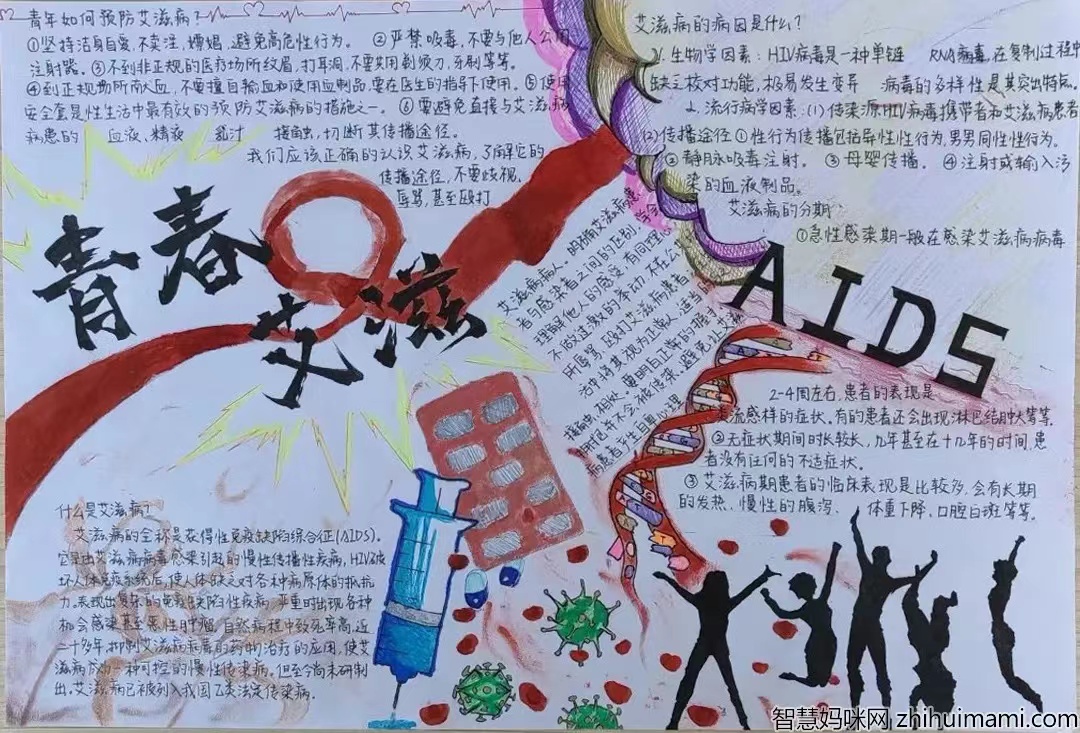 青年如何预防艾滋病？
①坚持洁身自爱，不卖淫，嫖娼，避免高危性行为。 ②严禁吸毒，不要与他人公用
注射器。③不到非正规的医疗场所纹眉，打耳洞，不要共用剃须刀，牙刷等等。
④到正规诊所输人血，不要擅自输血和使用血制品，要在医生的指导下使用。⑤使用
安全套是性生活中最有效的预防艾滋病的措施之一。⑥要避免直接与艾滋病
病患的 血液、精液 乳汁 接触，切断其传播途径。
我们应该正确的认识艾滋病，了解它的
传播途径，不要歧视、
辱骂，甚至殴打
艾滋病的病因是什么？
1、生物学因素：HIV病毒是一种单链 RNA病毒，在复制过程中
缺乏校对功能，极易发生变异 病毒的多样性是其突出特点。
2、流行病学因素：(1)传染源HIV病毒携带者和艾滋病患者
(2)传播途径①性行为传播包括异性性行为，男男同性性行为。
②静脉吸毒注射。③母婴传播。④注射或输入污
染的血液制品。
艾滋病的分期：
①急性感染期一般在感染艾滋病病毒
青春
艾滋
AIDS
艾滋病病人，明确艾滋病患
者与感染者之间的区别，学会
理解他人的感受，有同理心
不做过激的举动，不在公
所辱骂、殴打艾滋病患者
活中将其视为正常人，适当
要明白正常的握手
接触，相处
拥抱并不会被传染，避免让艾滋
病患者产生自卑心理
2-4周左右，患者的表现是
类流感样的症状。有的患者还会出现淋巴结肿大等等。
②无症状期间的时长较长，几年甚至在十几年的时间，患
者没有任何的不适症状。
③艾滋病期患者的临床表现是比较多，会有长期
的发热、慢性的腹泻、 体重下降，口腔白斑等等。
什么是艾滋病？
艾滋病的全称是获得性免疫缺陷综合征(AIDS)。
它是由艾滋病病毒感染引起的慢性传播性疾病，HIV破
坏人体免疫系统后，使人体缺乏对各种病原体的抵抗
力。表现出复杂的免疫缺陷性疾病，严重时出现各种
机会感染甚至恶性肿瘤，自然病程中致死率高，近
二十多年，抑制艾滋病病毒的药物治疗的应用，使艾
滋病成为一种可控的慢性传染病。但至今尚未研制
出。艾滋病已被列入我国乙类法定传染病。
智慧妈咪网 zhihuimami.com